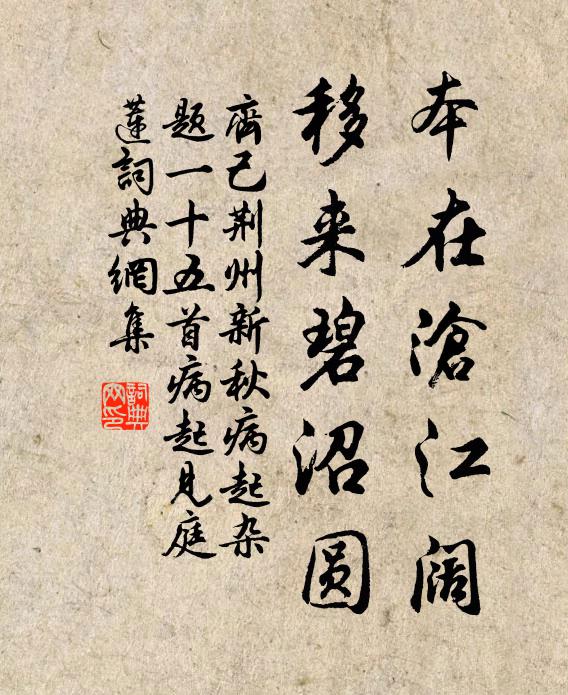 本在滄江阔
移来碧沼圆
齊己荆州新秋病起杂
题一十五首病起见庭
莲詞典網集
詞典
网印